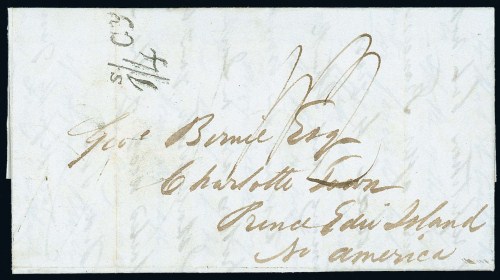 s/ Cy
1/4
Geo. Birnie Esq
Charlotte Town
Prince Edw Island
No America